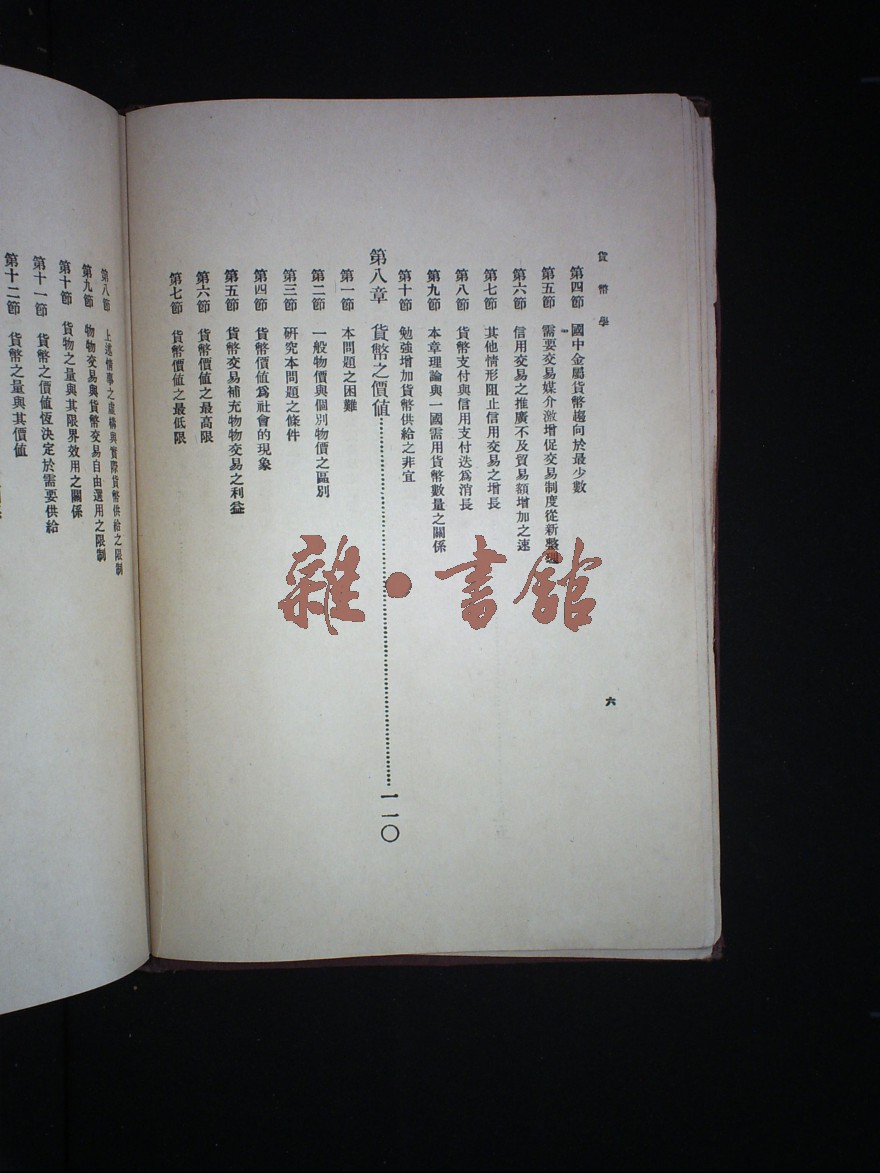 貨幣學
第四節 國中金屬貨幣趨向於最少數
第五節 需要交易媒介激增促交易制度從新整理
第六節 信用交易之推廣不及貿易額增加之速
第七節 其他情形阻止信用交易之增長
第八節 貨幣支付與信用支付迭爲消長
第九節 本章理論與一國需用貨幣數量之關係
第十節 勉強增加貨幣供給之非宜
第八章 貨幣之價値……一一〇
第一節 本問題之困難
第二節 一般物價與個別物價之區別
第三節 研究本問題之條件
第四節 貨幣價値爲社會的現象
第五節 貨幣交易補充物物交易之利益
第六節 貨幣價値之最高限
第七節 貨幣價値之最低限
六
第八節 上述情事之虛構與實際貨幣供給之限制
第九節 物物交易與貨幣交易自由選用之限制
第十節 貨物之量與其限界效用之關係
第十一節 貨幣之價値恆決定於需要供給
第十二節 貨幣之量與其價値
雜·書館